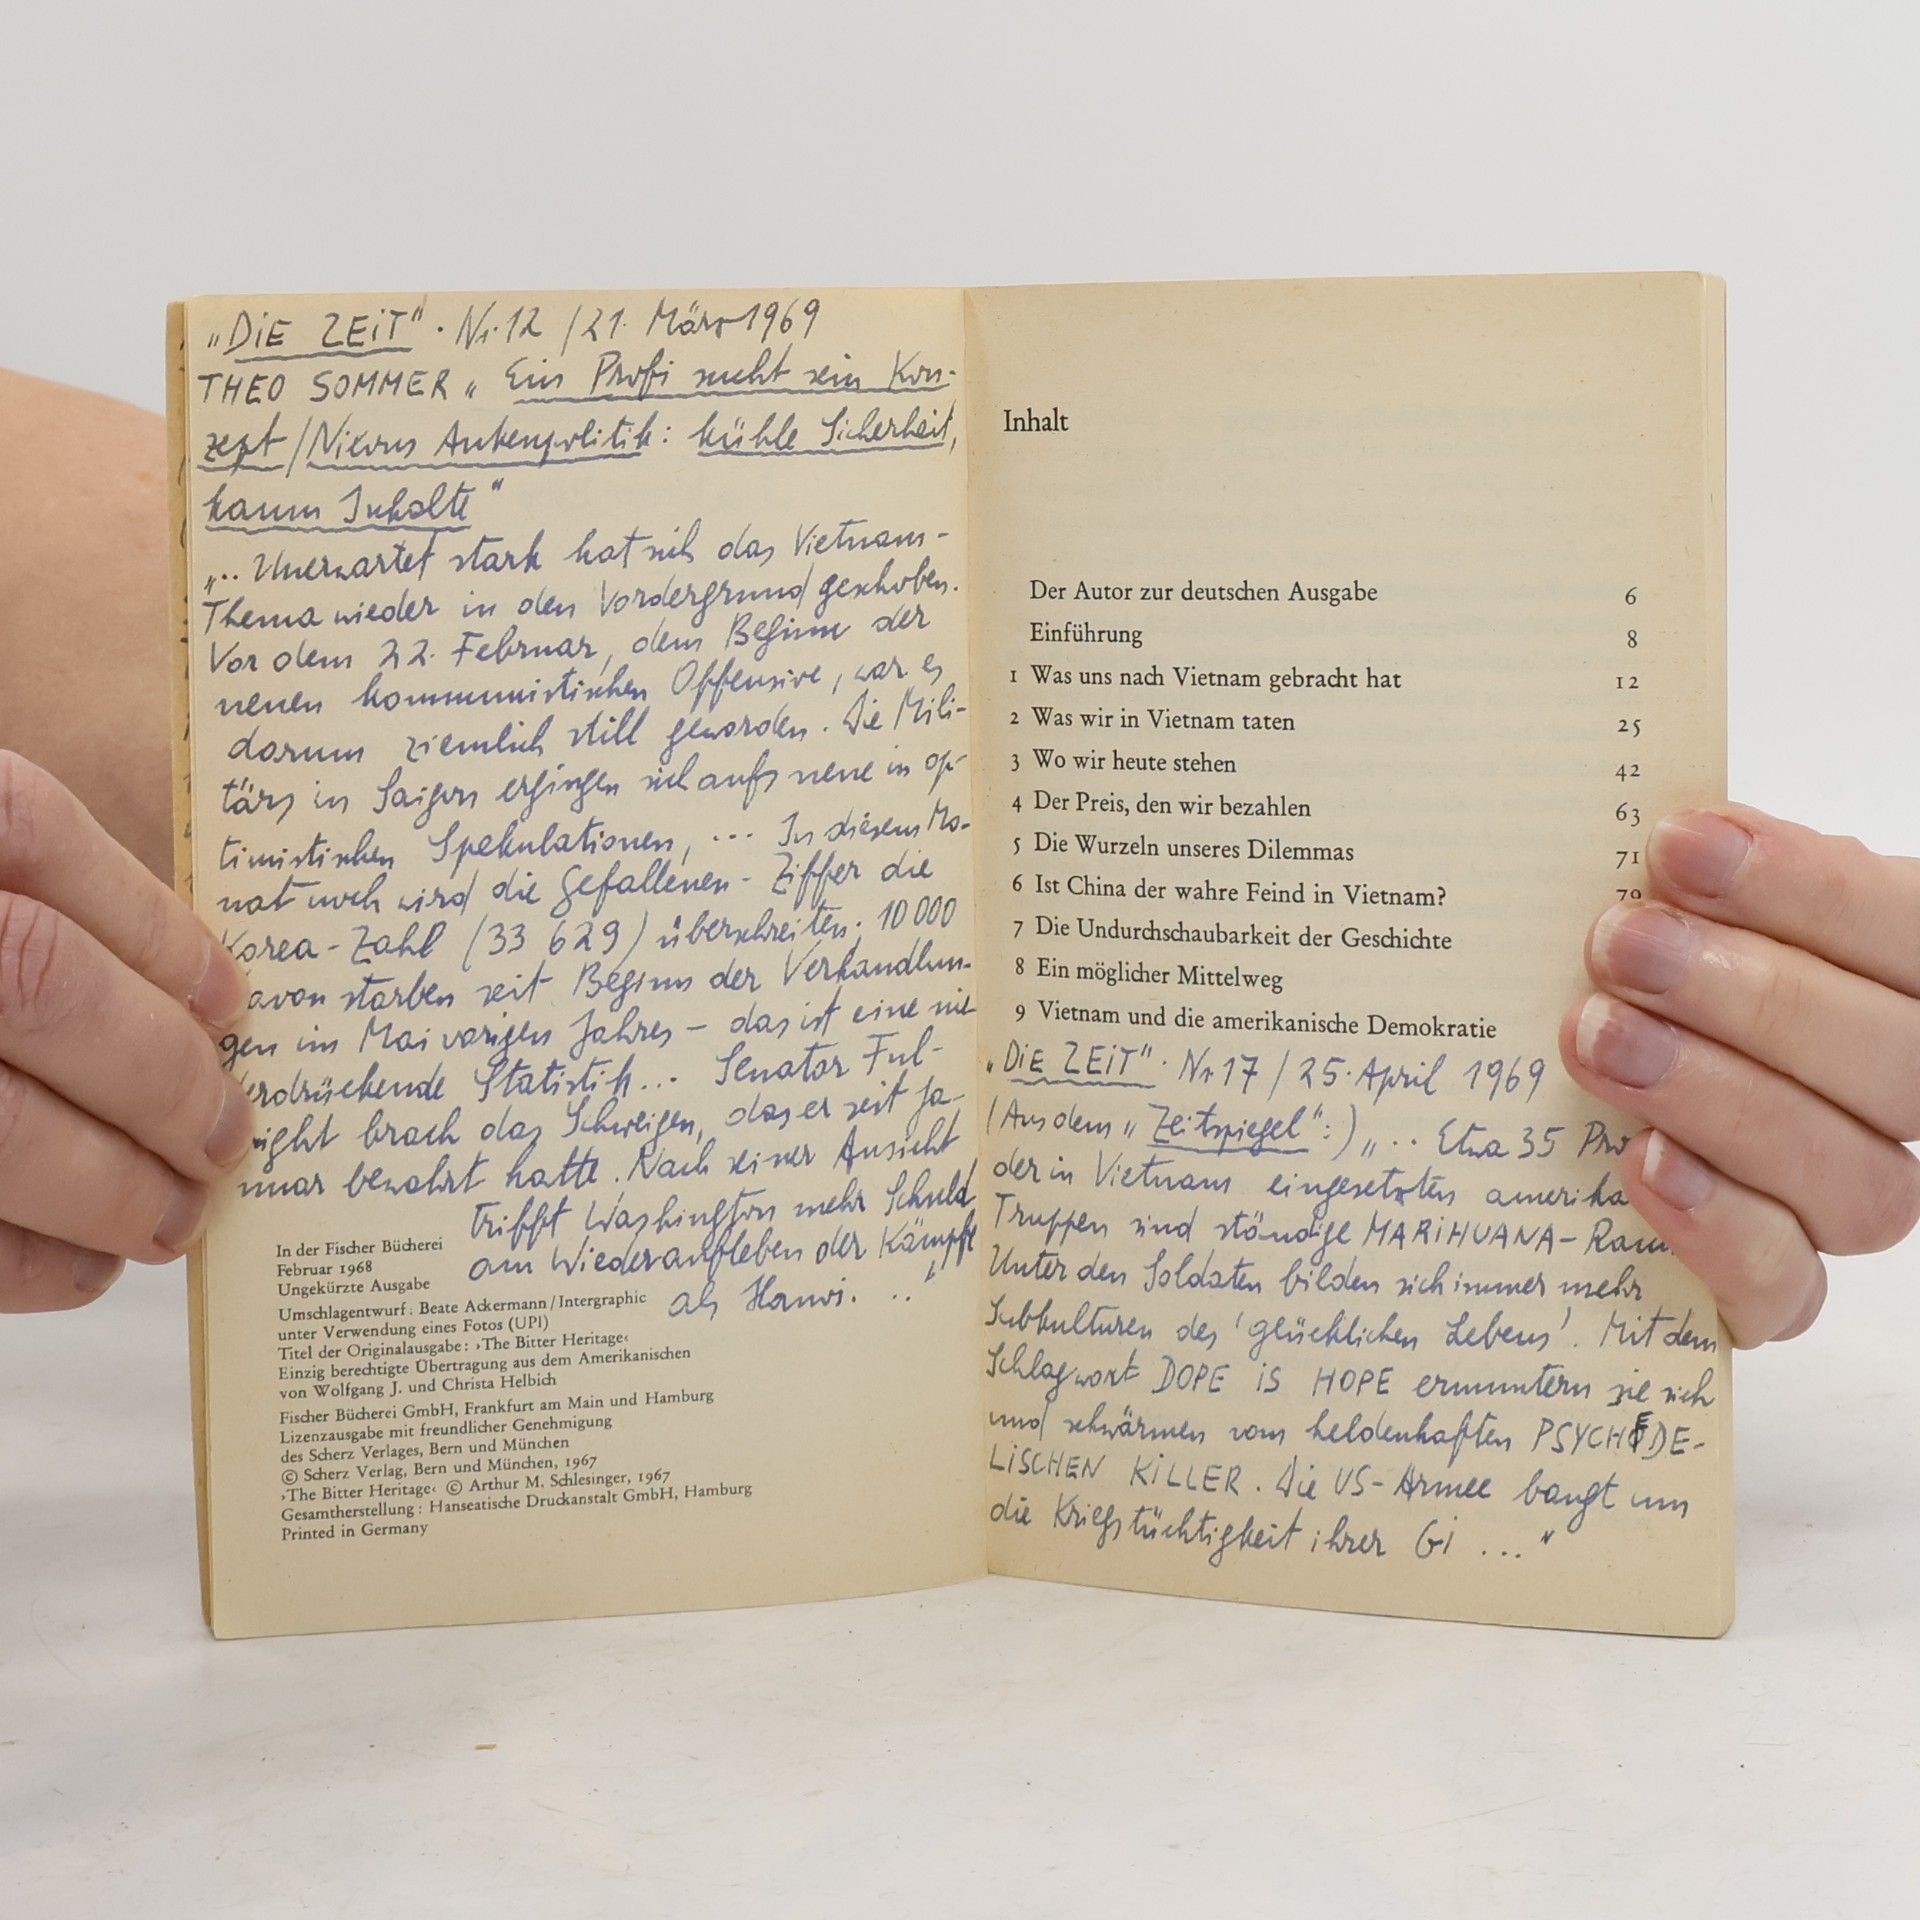 „DiE ZEiT“. Nr. 12 / 21. März 1969
THEO SOMMER „Ein Profi sucht sein Kon-
zept / Nixons Außenpolitik: kühle Sicherheit,
kaum Inhalte“
„.. Unerwartet stark hat sich das Vietnam-
Thema wieder in den Vordergrund geschoben.
Vor dem 22. Februar, dem Beginn der
neuen kommunistischen Offensive, war es
darum ziemlich still geworden. Die Mili-
tärs in Saigon ergingen sich aufs neue in op-
timistischen Spekulationen, ... In diesem Mo-
nat noch wird die Gefallenen-Ziffer die
Korea-Zahl (33 629) überschreiten; 10 000
davon starben seit Beginn der Verhandlun-
gen im Mai vorigen Jahres – das ist eine nie-
derdrückende Statistik... Senator Ful-
bright brach das Schweigen, das er seit Ja-
nuar bewahrt hatte. Nach seiner Ansicht
trifft Washington mehr Schuld
am Wiederaufleben der Kämpfe
als Hanoi. ..“
In der Fischer Bücherei
Februar 1968
Ungekürzte Ausgabe
Umschlagentwurf: Beate Ackermann/Intergraphic
unter Verwendung eines Fotos (UPI)
Titel der Originalausgabe: ›The Bitter Heritage‹
Einzig berechtigte Übertragung aus dem Amerikanischen
von Wolfgang J. und Christa Helbich
Fischer Bücherei GmbH, Frankfurt am Main und Hamburg
Lizenzausgabe mit freundlicher Genehmigung
des Scherz Verlages, Bern und München
© Scherz Verlag, Bern und München, 1967
›The Bitter Heritage‹ © Arthur M. Schlesinger, 1967
Gesamtherstellung: Hanseatische Druckanstalt GmbH, Hamburg
Printed in Germany
Inhalt
Der Autor zur deutschen Ausgabe 6
Einführung 8
1 Was uns nach Vietnam gebracht hat 12
2 Was wir in Vietnam taten 25
3 Wo wir heute stehen 42
4 Der Preis, den wir bezahlen 63
5 Die Wurzeln unseres Dilemmas 71
6 Ist China der wahre Feind in Vietnam? 79
7 Die Undurchschaubarkeit der Geschichte
8 Ein möglicher Mittelweg
9 Vietnam und die amerikanische Demokratie
„DiE ZEiT“. Nr. 17 / 25. April 1969
(Aus dem „Zeitspiegel“:) „.. Etwa 35 Pro
der in Vietnam eingesetzten amerika
Truppen sind ständige MARiHUANA-Rau
Unter den Soldaten bilden sich immer mehr
Subkulturen des 'glücklichen Lebens'. Mit dem
Schlagwort DOPE iS HOPE ermuntern sie sich
und schwärmen vom heldenhaften PSYCHEDE-
LiSCHEN KiLLER. Die US-Armee bangt um
die Kriegstüchtigkeit ihrer Gi ..."